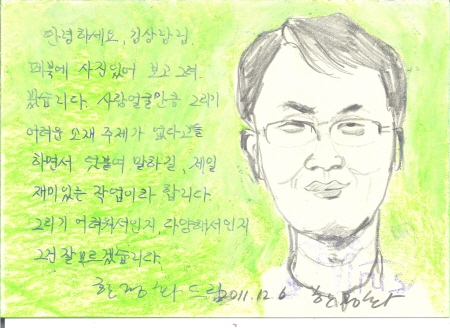 안녕하세요, 김상랑님.
페북에 사진있어 보고 그려
봤습니다. 사람얼굴만큼 그리기
어려운 소재 주제가 없다고들
하면서 덧붙여 말하길, 제일
재미있는 작업이라 합니다
그리기 어려워서인지, 다양해서인지
그건 잘 모르겠습니다.
드림 2011.12.6